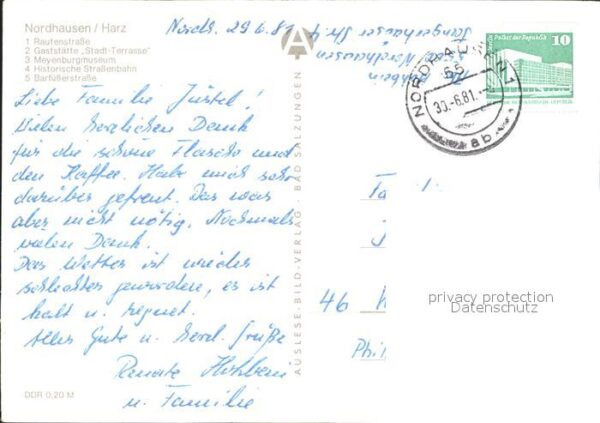 Nordhausen / Harz
1 Rautenstraße
2 Gaststätte „Stadt-Terrasse"
3 Meyenburgmuseum
4 Historische Straßenbahn
5 Barfüßerstraße
Nordh. 29.6.81
Liebe Familie Jüstel!
Vielen herzlichen Dank
für die schöne Flasche und
den Kaffee. Habe mich sehr
darüber gefreut. Das war
aber nicht nötig. Nochmals
vielen Dank.
Das Wetter ist wieder
schlechter geworden, es ist
kalt u. regnet.
Alles Gute u. herzl. Grüße
Renate
u. Familie
DDR 0,20 M
AUSLESE-BILD-VERLAG · BAD SALZUNGEN
Sangerhäuser Str. 4
Nordhausen
NORDHAUSEN 1
55
30.-6.81.
ab
Palast der Republik
10
Fa
46
Phi
privacy protection
Datenschutz